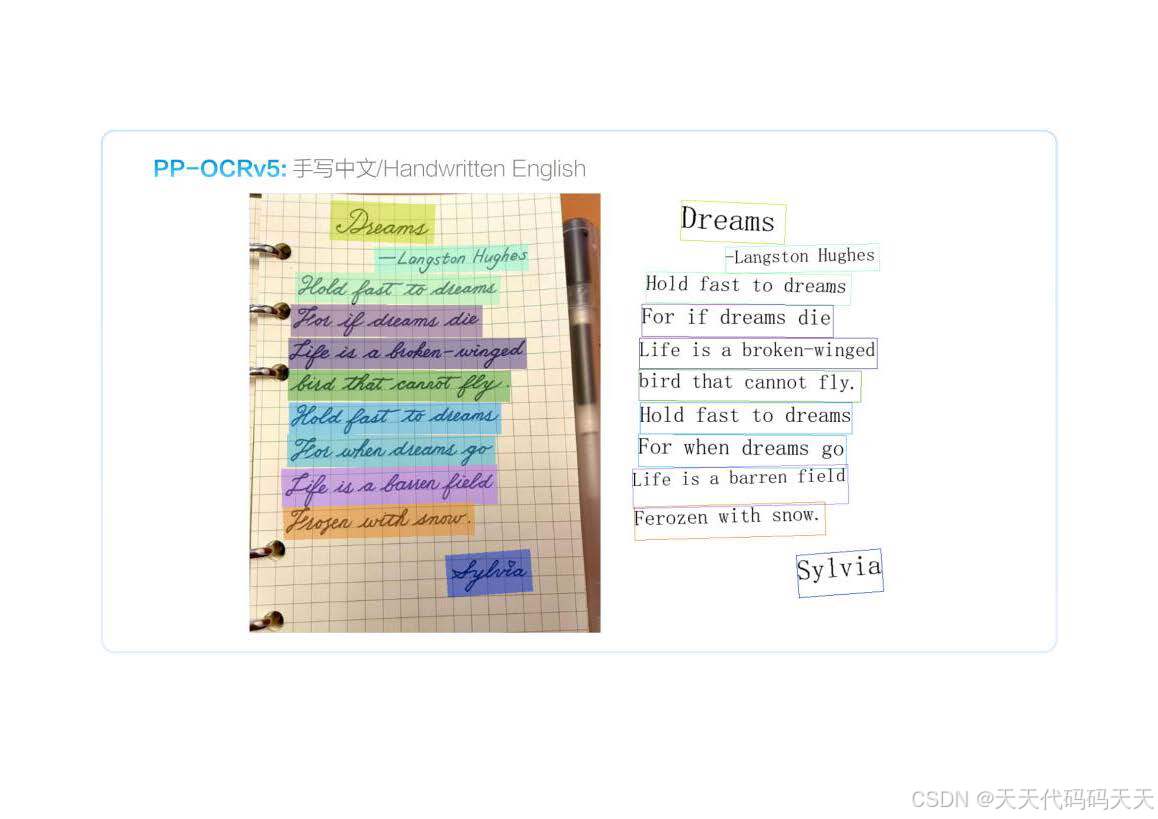 PP-OCRv5: 手写中文/Handwritten English
Dreams
—Langston Hughes
Hold fast to dreams
For if dreams die
Life is a broken-winged
bird that cannot fly.
Hold fast to dreams
For when dreams go
Life is a barren field
Frozen with snow.
Sylvia
Dreams
-Langston Hughes
Hold fast to dreams
For if dreams die
Life is a broken-winged
bird that cannot fly.
Hold fast to dreams
For when dreams go
Life is a barren field
Ferozen with snow.
Sylvia
CSDN @天天代码码天天